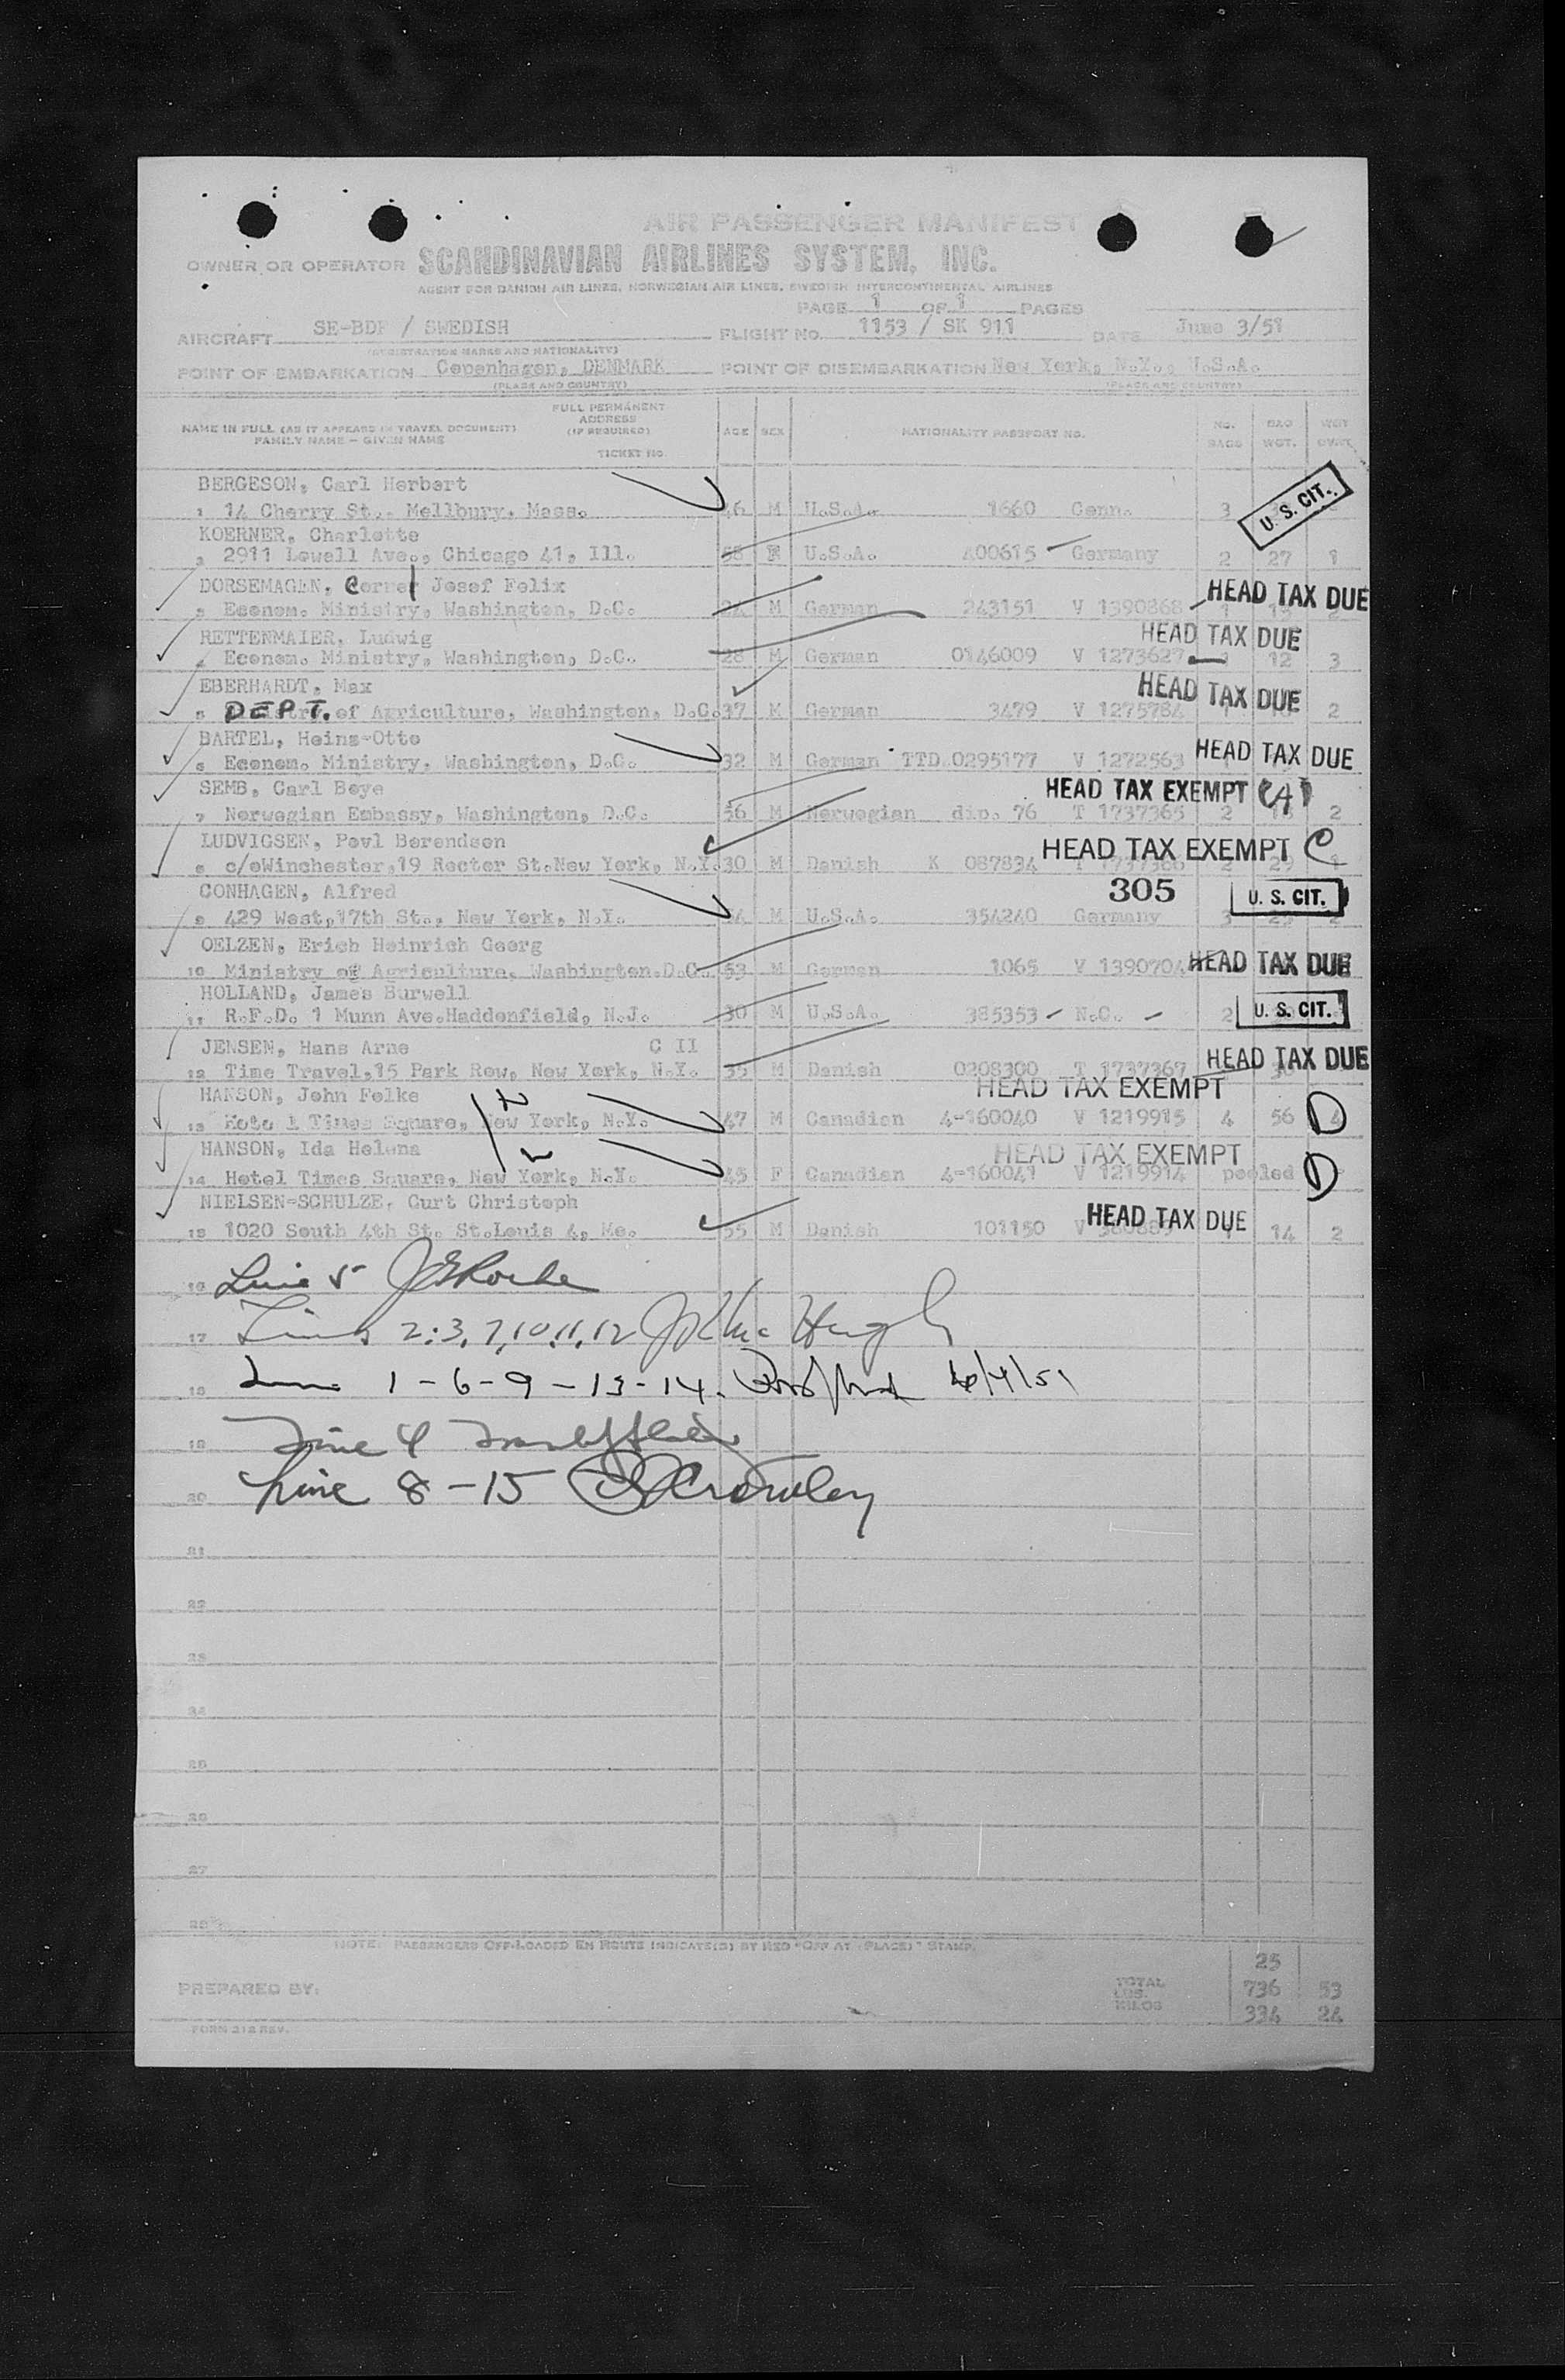 AIR PASSENGER MANIFEST
OWNER OR OPERATOR SCANDINAVIAN AIRLINES SYSTEM, INC.
AGENT FOR DANISH AIR LINES, NORWEGIAN AIR LINES, SWEDISH INTERCONTINENTAL AIRLINES
PAGE 1 OF 1 PAGES
AIRCRAFT SE-BDF / SWEDISH FLIGHT NO. 1153 / SK 911 DATE June 3/51
(REGISTRATION MARKS AND NATIONALITY)
POINT OF EMBARKATION Copenhagen, DENMARK POINT OF DISEMBARKATION New York, N.Y., U.S.A.
(PLACE AND COUNTRY) (PLACE AND COUNTRY)
FULL PERMANENT
ADDRESS
(IF REQUIRED)
NAME IN FULL (AS IT APPEARS IN TRAVEL DOCUMENT) AGE SEX NATIONALITY PASSPORT NO. NO. BAGS BAG WGT.
FAMILY NAME – GIVEN NAME
TICKET NO.
BERGESON, Carl Herbert
1 14 Cherry St., Mellbury, Mass. 46 M U.S.A. 1660 Conn. 3 U. S. CIT.
KOERNER, Charlotte
2 2911 Lowell Ave., Chicago 41, Ill. 58 F U.S.A. 400615 Germany 2 27 1
DORSEMAGEN, Josef Felix
3 Econom. Ministry, Washington, D.C. M German 243151 V 1390868 1 HEAD TAX DUE
RETTENMAIER, Ludwig HEAD TAX DUE
4 Econom. Ministry, Washington, D.C. 28 M German 0146009 V 1273627 1 12 3
EBERHARDT, Max HEAD TAX DUE
5 DEPT. of Agriculture, Washington, D.C. 37 M German 3479 V 1275784 2
BARTEL, Heinz-Otto
6 Econom. Ministry, Washington, D.C. 32 M German TTD 0295177 V 1272563 HEAD TAX DUE
SEMB, Carl Boye HEAD TAX EXEMPT (A)
7 Norwegian Embassy, Washington, D.C. 56 M Norwegian dip. 76 T 1737365 2 2
LUDVIGSEN, Povl Berendsen HEAD TAX EXEMPT C
8 c/oWinchester,19 Rector St.New York, N.Y. 30 M Danish K 087834
CONHAGEN, Alfred 305 U. S. CIT.
9 429 West,17th St., New York, N.Y. M U.S.A. 354240 Germany 3
OELZEN, Erich Heinrich Georg
10 Ministry of Agriculture, Washington,D.C. 53 M German 1065 V 1390704 HEAD TAX DUE
HOLLAND, James Burwell
11 R.F.D. 1 Munn Ave.Haddonfield, N.J. 30 M U.S.A. 385353 N.C. 2 U. S. CIT.
JENSEN, Hans Arne C II
12 Time Travel,15 Park Row, New York, N.Y. 35 M Danish 0208300 T 1737367 HEAD TAX DUE
HANSON, John Folke HEAD TAX EXEMPT
13 Hotel Times Square, New York, N.Y. 47 M Canadian 4-160040 V 1219915 4 56 4 D
HANSON, Ida Helena HEAD TAX EXEMPT
14 Hotel Times Square, New York, N.Y. 45 F Canadian 4-160041 V 1219914 pooled D
NIELSEN-SCHULZE, Curt Christoph
15 1020 South 4th St. St.Louis 4, Mo. 55 M Danish 101150 V HEAD TAX DUE 14 2
16 Line 5 J E Roche
17 Lines 2:3,7,10,11,12 J McHugh
18 Line 1-6-9-13-14. 6/4/51
19 Line 4
20 Line 8-15 Crowley
21
22
23
24
25
26
27
28
NOTE: PASSENGERS OFF-LOADED EN ROUTE INDICATE(D) BY RED "OFF AT (PLACE)" STAMP.
25
PREPARED BY: TOTAL LBS. 736 53
KILOS 334 24
FORM 212 REV.